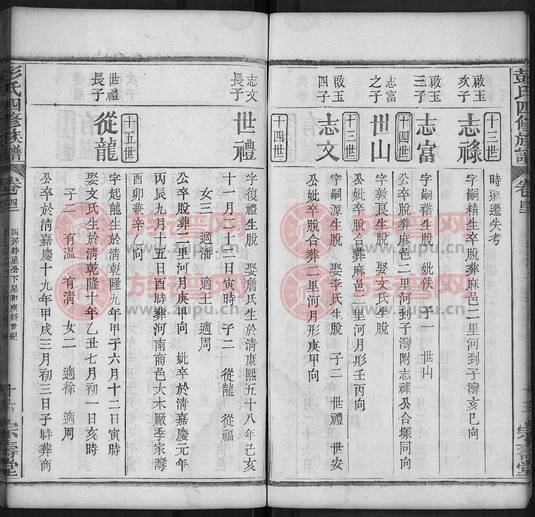 彭氏四修族譜
卷四
崇壽堂
時遠遷失考
十三世
啟玉
次子
志祿
字嗣精生脫 公卒脫葬麻邑二里河到子灣亥巳向
啟玉
三子
志富
字嗣稽生脫 妣佚 子一 世山
公卒脫葬麻邑二里河到子灣附志祿公合塚同向
十四世
志富
之子
世山
字敦長生脫 娶文氏生脫
公妣卒脫合葬二里河月形壬丙向
十三世
啟玉
亥子
志文
字嗣源生脫 娶李氏生脫 子二 世禮 世安
公妣卒脫合葬二里河月形庚甲向
十四世
志文
長子
世禮
字復禮生脫 娶詹氏生於清康熙五十八年己亥
十一月十二日寅時 子二 從龍 從福
女三 適潘 適王 適周
公卒脫葬二里河月庚甲向 妣卒於清嘉慶元年
丙辰九月十五日酉時葬河南商邑大木厰季家灣
酉卯兼辛乙向
十五世
世禮
長子
從龍
字起龍生於清乾隆九年甲子六月十二日寅時
娶文氏生於清乾隆十年乙丑七月初一日亥時
子二 有溫 有清 女二 適徐 適周
公卒於清嘉慶十九年甲戌三月初三日子時葬商
彭氏四修族譜
卷四
十六
崇壽堂
族譜网
www.zupu.cn